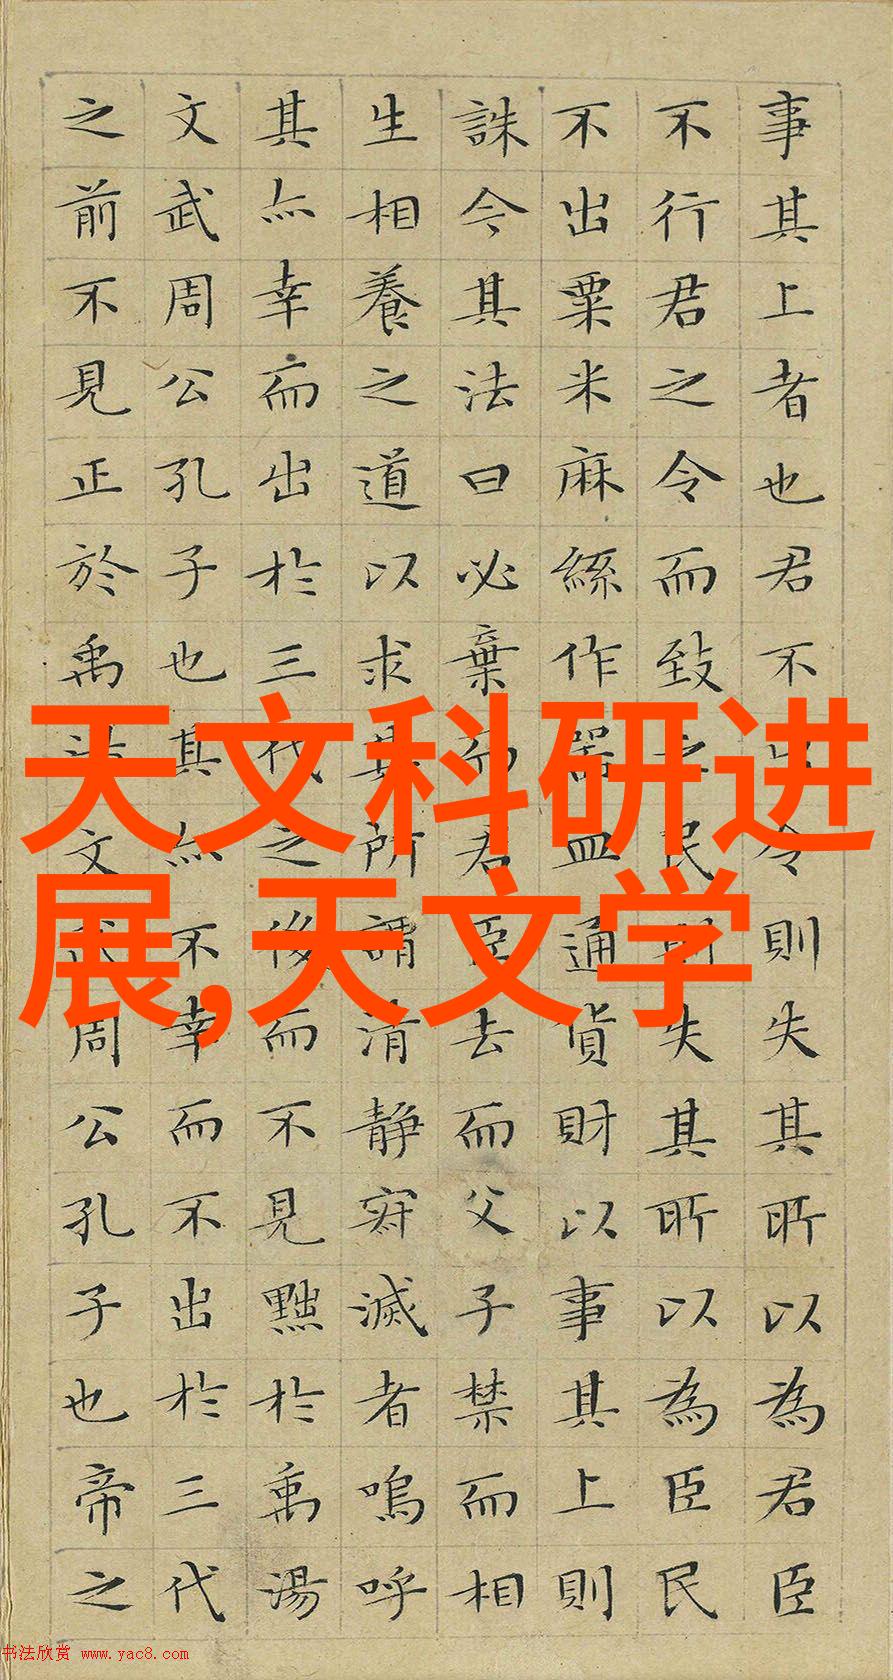 事其上者也君不出令則失其所以為君臣
不行君之令而致之民則失其所以為臣民
不出粟米麻絲作器皿通貨財以事其上則
誅今其法曰必棄而君臣去而父子禁而相
生相養之道以求其所謂清靜寂滅者嗚呼
其亦幸而出於三代之後而不見黜於禹湯
文武周公孔子也其亦不幸而不出於三代
之前不見正於禹湯文武周公孔子也帝之
天文科研进
展,天文学
书法欣赏 www.yac8.com